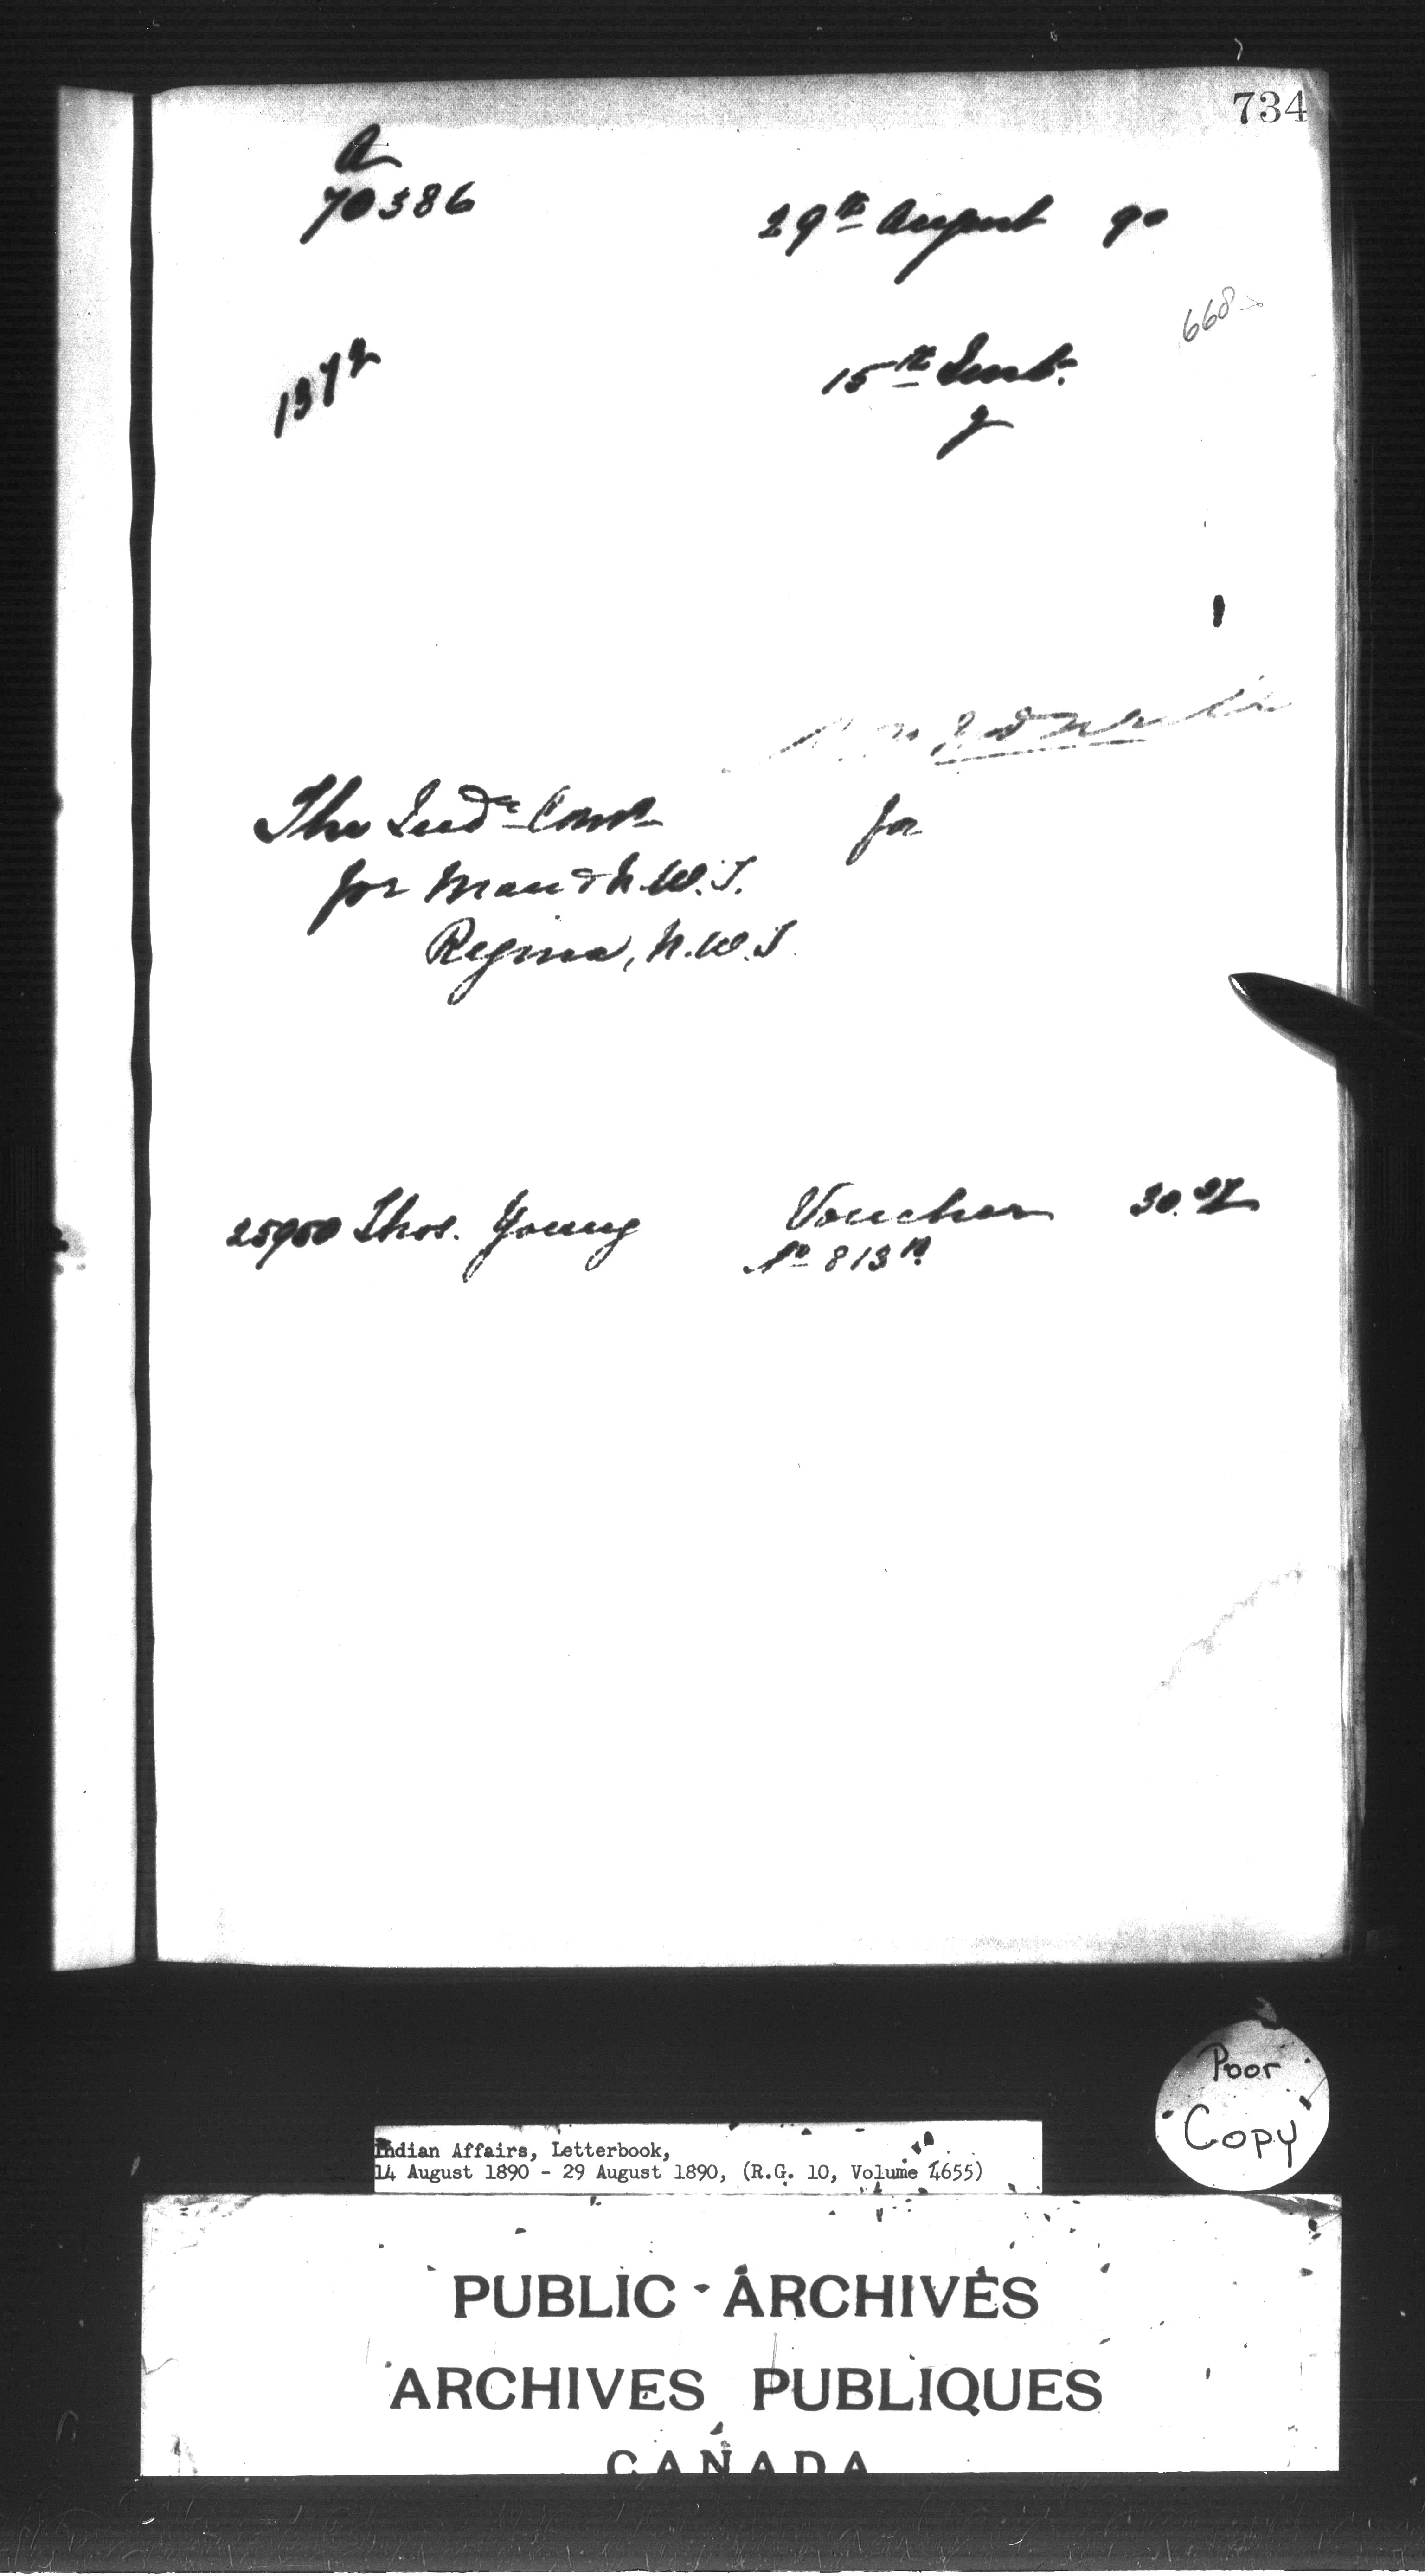 734
A
70386
29th August 90
668
1372
15th Inst.
y
The Indn Comr
for
for Man & N.W.T.
Regina, N.W.T.
25900 Thos. Young Voucher
No 813
Poor
Copy
Indian Affairs, Letterbook,
14 August 1890 - 29 August 1890, (R.G. 10, Volume 4655)
PUBLIC ARCHIVES
ARCHIVES PUBLIQUES
CANADA